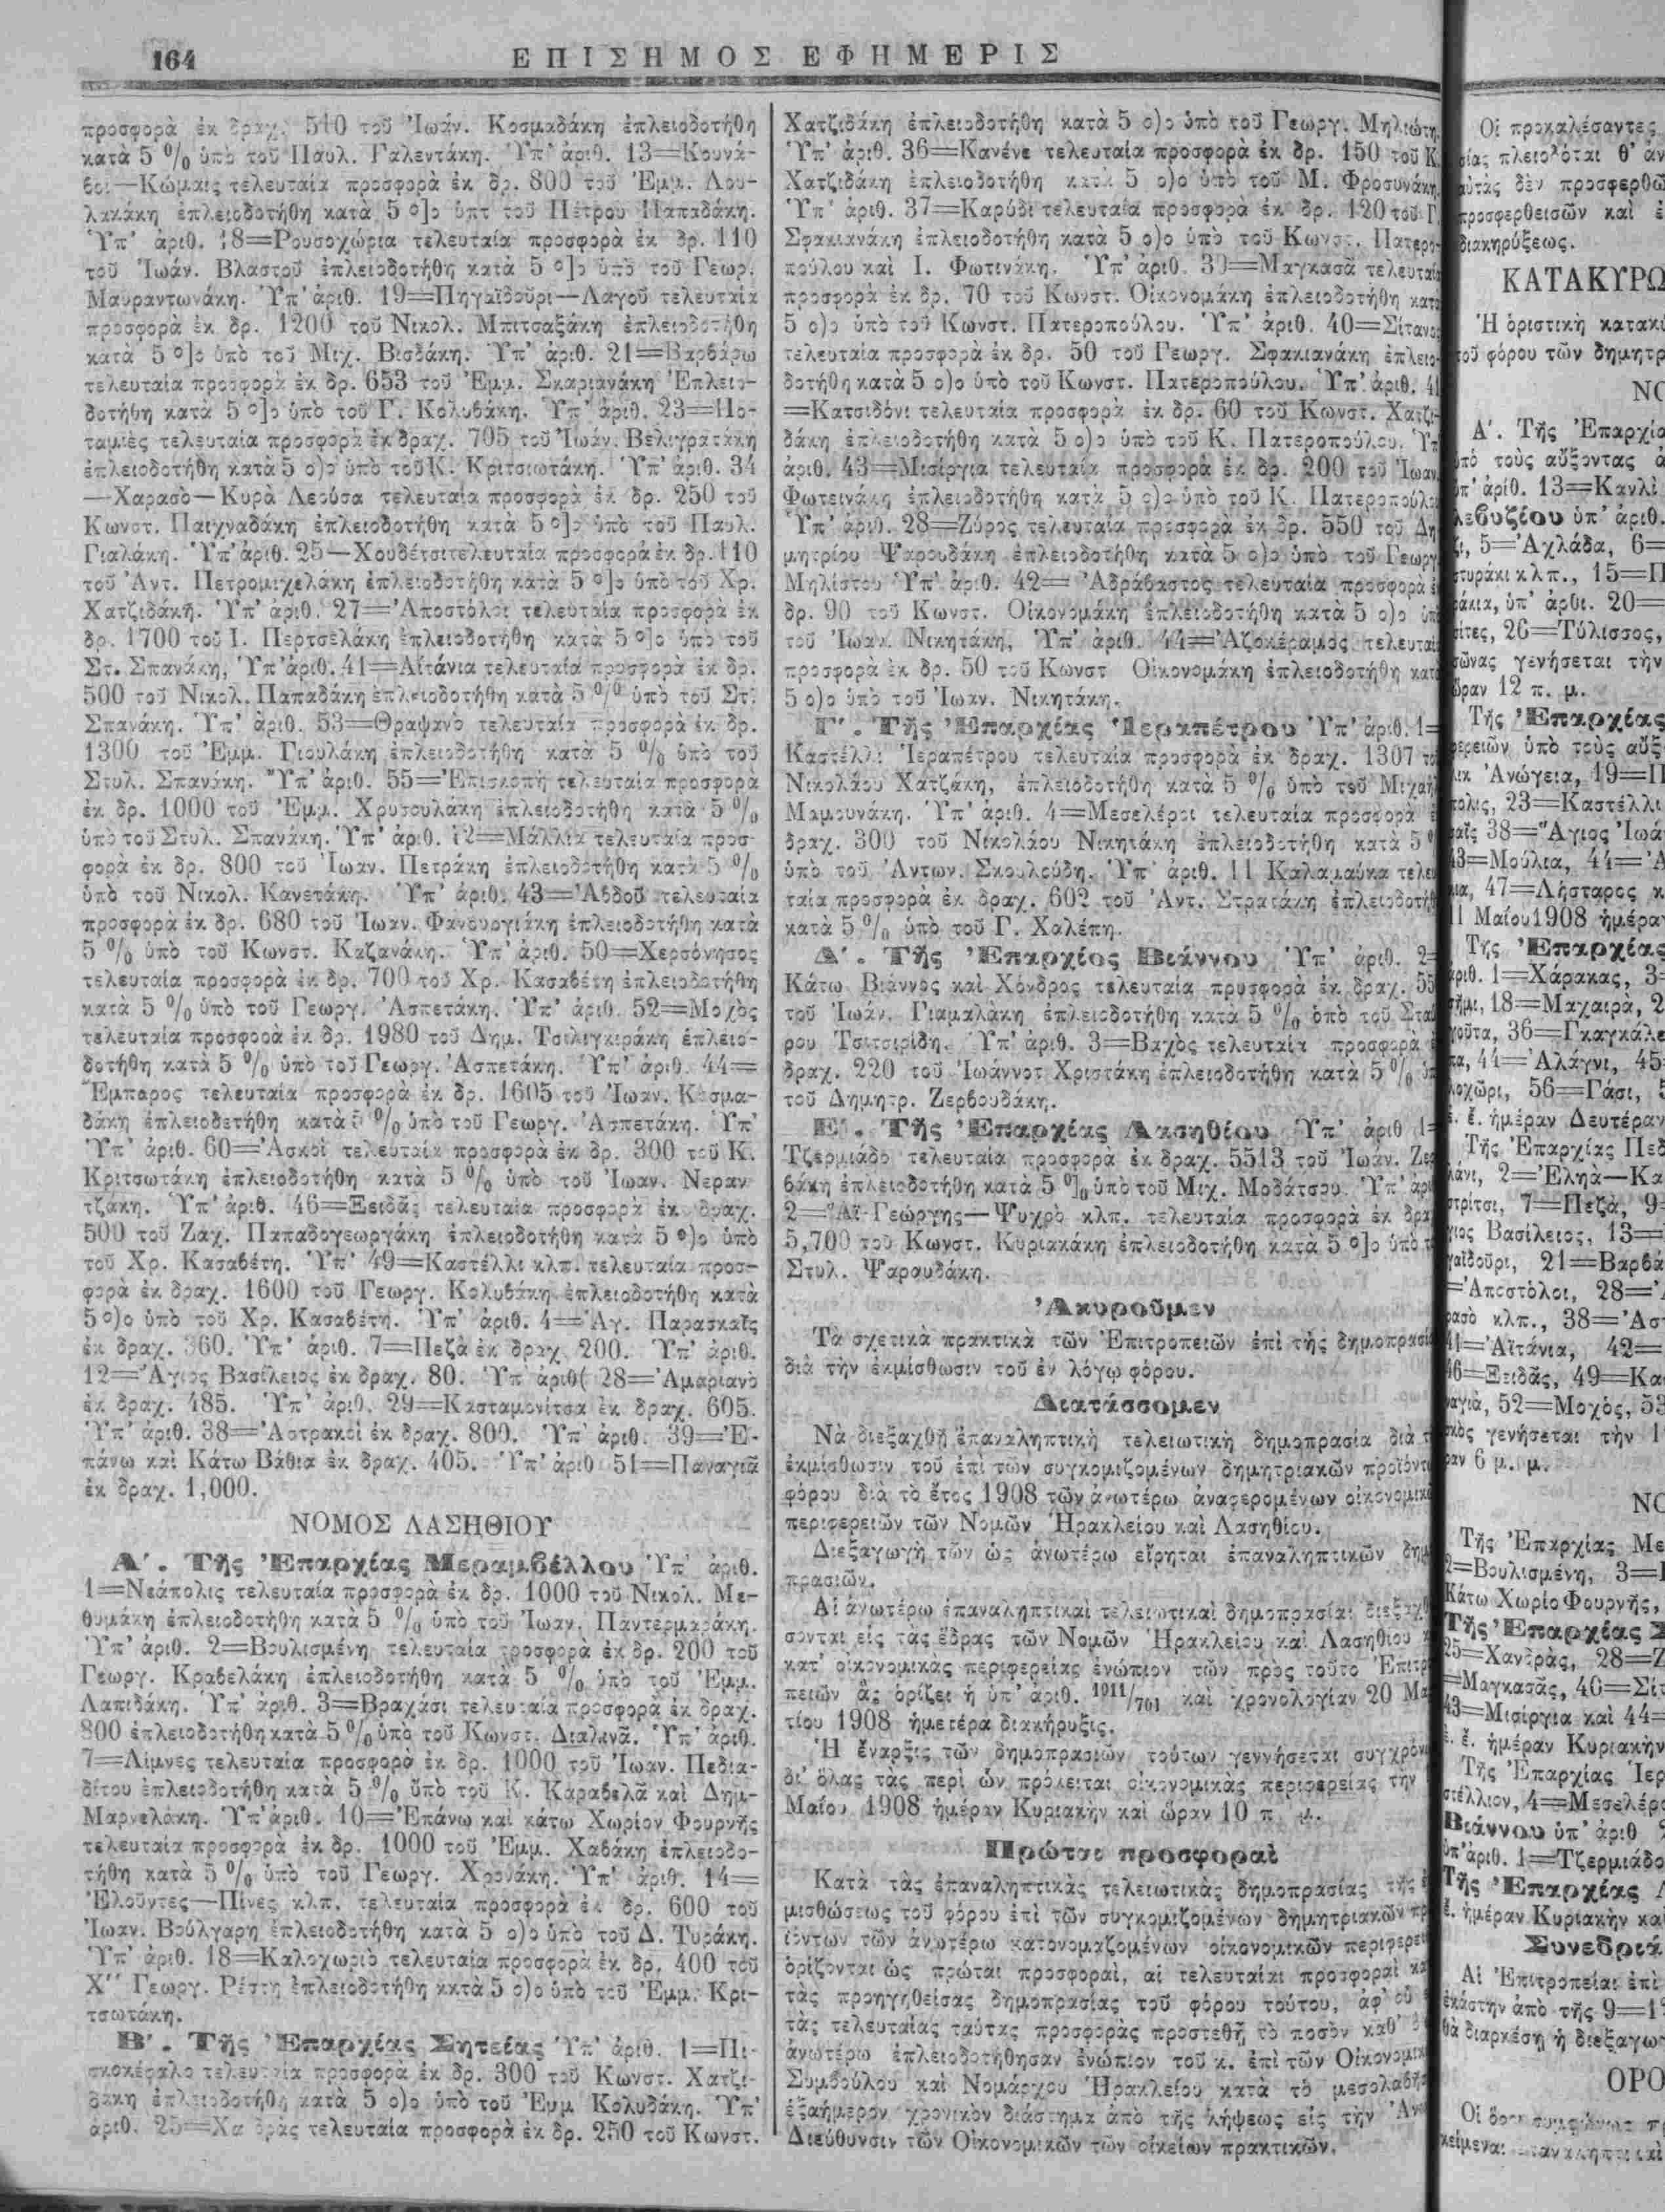 164
ΕΠΙΣΗΜΟΣ ΕΦΗΜΕΡΙΣ
προσφορὰ ἐκ δραχ. 510 τοῦ Ἰωάν. Κοσμαδάκη ἐπλειοδοτήθη
κατὰ 5 % ὑπὸ τοῦ Παυλ. Γαλεντάκη. Ὑπ' ἀριθ. 13=Κουνά-
βοι—Κώμαις τελευταία προσφορὰ ἐκ δρ. 800 τοῦ Ἐμμ. Λου-
λακάκη ἐπλειοδοτήθη κατὰ 5 ο]ο ὑπτ τοῦ Πέτρου Παπαδάκη.
Ὑπ' ἀριθ. 18=Ρουσοχώρια τελευταία προσφορὰ ἐκ δρ. 110
τοῦ Ἰωάν. Βλαστοῦ ἐπλειοδοτήθη κατὰ 5 ο]ο ὑπὸ τοῦ Γεωρ.
Μαυραντωνάκη. Ὑπ' ἀριθ. 19=Πηγαϊδοῦρι—Λαγοῦ τελευταία
προσφορὰ ἐκ δρ. 1200 τοῦ Νικολ. Μπιτσαξάκη ἐπλειοδοτήθη
κατὰ 5 ο]ο ὑπὸ τοῦ Μιχ. Βισδάκη. Ὑπ' ἀριθ. 21=Βαρβάρω
τελευταία προσφορὰ ἐκ δρ. 653 τοῦ Ἐμμ. Σκαριανάκη Ἐπλειο-
δοτήθη κατὰ 5 ο]ο ὑπὸ τοῦ Γ. Κολυβάκη. Ὑπ' ἀριθ. 23=Πο-
ταμιὲς τελευταία προσφορὰ ἐκ δραχ. 705 τοῦ Ἰωάν. Βελιγρατάκη
ἐπλειοδοτήθη κατὰ 5 ο)ο ὑπὸ τοῦ Κ. Κριτσιωτάκη. Ὑπ' ἀριθ. 34
—Χαρασὸ—Κυρὰ Λεοῦσα τελευταία προσφορὰ ἐκ δρ. 250 τοῦ
Κωνστ. Παιχναδάκη ἐπλειοδοτήθη κατὰ 5 ο]ο ὑπὸ τοῦ Παυλ.
Γιαλάκη. Ὑπ' ἀριθ. 25—Χουδέτσι τελευταία προσφορὰ ἐκ δρ. 110
τοῦ Ἀντ. Πετρομιχελάκη ἐπλειοδοτήθη κατὰ 5 ο]ο ὑπὸ τοῦ Χρ.
Χατζιδάκη. Ὑπ' ἀριθ. 27=Ἀποστόλοι τελευταία προσφορὰ ἐκ
δρ. 1700 τοῦ Ι. Περτσελάκη ἐπλειοδοτήθη κατὰ 5 ο]ο ὑπὸ τοῦ
Στ. Σπανάκη, Ὑπ' ἀριθ. 41=Αϊτάνια τελευταία προσφορὰ ἐκ δρ.
500 τοῦ Νικολ. Παπαδάκη ἐπλειοδοτήθη κατὰ 5 % ὑπὸ τοῦ Στ.
Σπανάκη. Ὑπ' ἀριθ. 53=Θραψανὸ τελευταία προσφορὰ ἐκ δρ.
1300 τοῦ Ἐμμ. Γιουλάκη ἐπλειοδοτήθη κατὰ 5 % ὑπὸ τοῦ
Στυλ. Σπανάκη. Ὑπ' ἀριθ. 55=Ἐπισκοπὴ τελευταία προσφορὰ
ἐκ δρ. 1000 τοῦ Ἐμμ. Χρυσουλάκη ἐπλειοδοτήθη κατὰ 5 %
ὑπὸ τοῦ Στυλ. Σπανάκη. Ὑπ' ἀριθ. 12=Μάλλια τελευταία προσ-
φορὰ ἐκ δρ. 800 τοῦ Ἰωαν. Πετράκη ἐπλειοδοτήθη κατὰ 5 %
ὑπὸ τοῦ Νικολ. Κανετάκη. Ὑπ' ἀριθ. 43=Ἀβδοῦ τελευταία
προσφορὰ ἐκ δρ. 680 τοῦ Ἰωαν. Φανουργιάκη ἐπλειοδοτήθη κατὰ
5 % ὑπὸ τοῦ Κωνστ. Καζανάκη. Ὑπ' ἀριθ. 50=Χερσόνησος
τελευταία προσφορὰ ἐκ δρ. 700 τοῦ Χρ. Κασαβέτη ἐπλειοδοτήθη
κατὰ 5 % ὑπὸ τοῦ Γεωργ. Ἀσπετάκη. Ὑπ' ἀριθ. 52=Μοχὸς
τελευταία προσφορὰ ἐκ δρ. 1980 τοῦ Δημ. Τσιλιγκιράκη ἐπλειο-
δοτήθη κατὰ 5 % ὑπὸ τοῦ Γεωργ. Ἀσπετάκη. Ὑπ' ἀριθ. 44=
Ἔμπαρος τελευταία προσφορὰ ἐκ δρ. 1605 τοῦ Ἰωαν. Κοσμα-
δάκη ἐπλειοδετήθη κατὰ 5 % ὑπὸ τοῦ Γεωργ. Ἀσπετάκη. Ὑπ'
Ὑπ' ἀριθ. 60=Ἀσκοὶ τελευταία προσφορὰ ἐκ δρ. 300 τοῦ Κ.
Κριτσωτάκη ἐπλειοδοτήθη κατὰ 5 % ὑπὸ τοῦ Ἰωαν. Νεραν
τζάκη. Ὑπ' ἀριθ. 46=Ξειδᾶς τελευταία προσφορὰ ἐκ δραχ.
500 τοῦ Ζαχ. Παπαδογεωργάκη ἐπλειοδοτήθη κατὰ 5 ο)ο ὑπὸ
τοῦ Χρ. Κασαβέτη. Ὑπ' 49=Καστέλλι κλπ. τελευταία προσ-
φορὰ ἐκ δραχ. 1600 τοῦ Γεωργ. Κολυβάκη ἐπλειοδοτήθη κατὰ
5 ο)ο ὑπὸ τοῦ Χρ. Κασαβέτη. Ὑπ' ἀριθ. 4=Ἁγ. Παρασκαῖς
ἐκ δραχ. 360. Ὑπ' ἀριθ. 7=Πεζὰ ἐκ δραχ. 200. Ὑπ' ἀριθ.
12=Ἅγιος Βασίλειος ἐκ δραχ. 80. Ὑπ' ἀριθ( 28=Ἀμαριανὸ
ἐκ δραχ. 485. Ὑπ' ἀριθ. 29=Κασταμονίτσα ἐκ δραχ. 605.
Ὑπ' ἀριθ. 38=Ἀστρακοὶ ἐκ δραχ. 800. Ὑπ' ἀριθ. 39=Ἐ-
πάνω καὶ Κάτω Βάθια ἐκ δραχ. 405. Ὑπ' ἀριθ 51=Παναγιᾶ
ἐκ δραχ. 1,000.
ΝΟΜΟΣ ΛΑΣΗΘΙΟΥ
Α'. Τῆς Ἐπαρχίας Μεραμβέλλου Ὑπ' ἀριθ.
1=Νεάπολις τελευταία προσφορὰ ἐκ δρ. 1000 τοῦ Νικολ. Με-
θυμάκη ἐπλειοδοτήθη κατὰ 5 % ὑπὸ τοῦ Ἰωαν. Παντερμαράκη.
Ὑπ' ἀριθ. 2=Βουλισμένη τελευταία προσφορὰ ἐκ δρ. 200 τοῦ
Γεωργ. Κραβελάκη ἐπλειοδοτήθη κατὰ 5 % ὑπὸ τοῦ Ἐμμ.
Λαπιδάκη. Ὑπ' ἀριθ. 3=Βραχάσι τελευταία προσφορὰ ἐκ δραχ.
800 ἐπλειοδοτήθη κατὰ 5 % ὑπὸ τοῦ Κωνστ. Διαλινᾶ. Ὑπ' ἀριθ.
7=Λίμνες τελευταία προσφορὰ ἐκ δρ. 1000 τοῦ Ἰωαν. Πεδια-
δίτου ἐπλειοδοτήθη κατὰ 5 % ὑπὸ τοῦ Κ. Καραβελᾶ καὶ Δημ-
Μαρνελάκη. Ὑπ' ἀριθ. 10=Ἐπάνω καὶ κάτω Χωρίον Φουρνῆς
τελευταία προσφορὰ ἐκ δρ. 1000 τοῦ Ἐμμ. Χαβάκη ἐπλειοδο-
τήθη κατὰ 5 % ὑπὸ τοῦ Γεωργ. Χρονάκη. Ὑπ' ἀριθ. 14=
Ἐλοῦντες—Πίνες κλπ. τελευταία προσφορὰ ἐκ δρ. 600 τοῦ
Ἰωαν. Βούλγαρη ἐπλειοδοτήθη κατὰ 5 ο)ο ὑπὸ τοῦ Δ. Τυράκη.
Ὑπ' ἀριθ. 18=Καλοχωριὸ τελευταία προσφορὰ ἐκ δρ. 400 τοῦ
Χ'' Γεωργ. Ρέστη ἐπλειοδοτήθη κκτὰ 5 ο)ο ὑπὸ τοῦ Ἐμμ. Κρι-
τσωτάκη.
Β'. Τῆς Ἐπαρχίας Σητείας Ὑπ' ἀριθ. 1=Πι-
σκοκέφαλο τελευταία προσφορὰ ἐκ δρ. 300 τοῦ Κωνστ. Χατζι-
δάκη ἐπλειοδοτήθη κατὰ 5 ο)ο ὑπὸ τοῦ Ἐμμ Κολυδάκη. Ὑπ'
ἀριθ. 25=Χανδρὰς τελευταία προσφορὰ ἐκ δρ. 250 τοῦ Κωνστ.
Χατζιδάκη ἐπλειοδοτήθη κατὰ 5 ο)ο ὑπὸ τοῦ Γεωργ. Μηλιώτη.
Ὑπ' ἀριθ. 36=Κανένε τελευταία προσφορὰ ἐκ δρ. 150 τοῦ Κ.
Χατζιδάκη ἐπλειοδοτήθη κατὰ 5 ο)ο ὑπὸ τοῦ Μ. Φροσυνάκη.
Ὑπ' ἀριθ. 37=Καρύδι τελευταία προσφορὰ ἐκ δρ. 120 τοῦ Γ.
Σφακιανάκη ἐπλειοδοτήθη κατὰ 5 ο)ο ὑπὸ τοῦ Κωνστ. Πατερο-
πούλου καὶ Ι. Φωτινάκη. Ὑπ' ἀριθ. 39=Μαγκασᾶ τελευταία
προσφορὰ ἐκ δρ. 70 τοῦ Κωνστ. Οἰκονομάκη ἐπλειοδοτήθη κατὰ
5 ο)ο ὑπὸ τοῦ Κωνστ. Πατεροπούλου. Ὑπ' ἀριθ. 40=Σίτανος
τελευταία προσφορὰ ἐκ δρ. 50 τοῦ Γεωργ. Σφακιανάκη ἐπλειο-
δοτήθη κατὰ 5 ο)ο ὑπὸ τοῦ Κωνστ. Πατεροπούλου. Ὑπ' ἀριθ. 41
=Κατσιδόνι τελευταία προσφορὰ ἐκ δρ. 60 τοῦ Κωνστ. Χατζι-
δάκη ἐπλειοδοτήθη κατὰ 5 ο)ο ὑπὸ τοῦ Κ. Πατεροπούλου. Ὑπ'
ἀριθ. 43=Μισίργια τελευταία προσφορὰ ἐκ δρ. 200 τοῦ Ἰωαν.
Φωτεινάκη ἐπλειοδοτήθη κατὰ 5 ο)ο ὑπὸ τοῦ Κ. Πατεροπούλου
Ὑπ' ἀριθ. 28=Ζύρος τελευταία προσφορὰ ἐκ δρ. 550 τοῦ Δη
μητρίου Ψαρουδάκη ἐπλειοδοτήθη κατὰ 5 ο)ο ὑπὸ τοῦ Γεωργ
Μηλίστου Ὑπ' ἀριθ. 42=Ἀδράβαστος τελευταία προσφορὰ ἐ
δρ. 90 τοῦ Κωνστ. Οἰκονομάκη ἐπλειοδοτήθη κατὰ 5 ο)ο ὑπ
τοῦ Ἰωαν. Νικητάκη, Ὑπ' ἀριθ. 44=Ἀζοκέραμος τελευταί
προσφορὰ ἐκ δρ. 50 τοῦ Κωνστ Οἰκονομάκη ἐπλειοδοτήθη κατὰ
5 ο)ο ὑπὸ τοῦ Ἰωαν. Νικητάκη.
Γ'. Τῆς Ἐπαρχίας Ἱεραπέτρου Ὑπ' ἀριθ. 1=
Καστέλλι Ἱεραπέτρου τελευταία προσφορὰ ἐκ δραχ. 1307 το
Νικολάου Χατζάκη, ἐπλειοδοτήθη κατὰ 5 % ὑπὸ τοῦ Μιχαὴλ
Μαμουνάκη. Ὑπ' ἀριθ. 4=Μεσελέροι τελευταία προσφορὰ ἐ
δραχ. 300 τοῦ Νικολάου Νικητάκη ἐπλειοδοτήθη κατὰ 5 %
ὑπὸ τοῦ Ἀντων. Σκουλούδη. Ὑπ' ἀριθ. 11 Καλαμαύκα τελευ
ταία προσφορὰ ἐκ δραχ. 602 τοῦ Ἀντ. Στρατάκη ἐπλειοδοτήθ
κατὰ 5 % ὑπὸ τοῦ Γ. Χαλέπη.
Δ'. Τῆς Ἐπαρχίος Βιάννου Ὑπ' ἀριθ. 2=
Κάτω Βιάννος καὶ Χόνδρος τελευταία πρυσφορὰ ἐκ δραχ. 55
τοῦ Ἰωάν. Γιαμαλάκη ἐπλειοδοτήθη κατὰ 5 % ὑπὸ τοῦ Σταύ
ρου Τσιτσιρίδη. Ὑπ' ἀριθ. 3=Βαχὸς τελευταία προσφορὰ ἐ
δραχ. 220 τοῦ Ἰωάννοτ Χριστάκη ἐπλειοδοτήθη κατὰ 5 % ὑπ
τοῦ Δημητρ. Ζερβουδάκη.
Ε'. Τῆς Ἐπαρχίας Λασηθίου Ὑπ' ἀριθ 1=
Τζερμιάδο τελευταία προσφορὰ ἐκ δραχ. 5513 τοῦ Ἰωάν. Ζερ
βάκη ἐπλειοδοτήθη κατὰ 5 ο]ο ὑπὸ τοῦ Μιχ. Μοδάτσου. Ὑπ' ἀρι
2=Ἅϊ Γεώργης—Ψυχρὸ κλπ. τελευταία προσφορὰ ἐκ δρα
5,700 τοῦ Κωνστ. Κυριακάκη ἐπλειοδοτήθη κατὰ 5 ο]ο ὑπὸ τ
Στυλ. Ψαρουδάκη.
Ἀκυροῦμεν
Τὰ σχετικὰ πρακτικὰ τῶν Ἐπιτροπειῶν ἐπὶ τῆς δημοπρασία
διὰ τὴν ἐκμίσθωσιν τοῦ ἐν λόγῳ φόρου.
Διατάσσομεν
Νὰ διεξαχθῇ ἐπαναληπτικὴ τελειωτικὴ δημοπρασία διὰ τ
ἐκμίσθωσιν τοῦ ἐπὶ τῶν συγκομιζομένων δημητριακῶν προϊόντω
φόρου διὰ τὸ ἔτος 1908 τῶν ἀνωτέρω ἀναφερομένων οἰκονομικῶ
περιφερειῶν τῶν Νομῶν Ἡρακλείου καὶ Λασηθίου.
Διεξαγωγὴ τῶν ὡς ἀνωτέρω εἴρηται ἐπαναληπτικῶν δημ
πρασιῶν.
Αἱ ἀνωτέρω ἐπαναληπτικαὶ τελειωτικαὶ δημοπρασίαι διεξαχθ
σονται εἰς τὰς ἕδρας τῶν Νομῶν Ἡρακλείου καὶ Λασηθίου κ
κατ' οἰκονομικὰς περιφερείας ἐνώπιον τῶν πρὸς τοῦτο Ἐπιτρο
πειῶν ἃς ὁρίζει ἡ ὑπ' ἀριθ. 1011/701 καὶ χρονολογίαν 20 Μαρ
τίου 1908 ἡμετέρα διακήρυξις.
Ἡ ἔναρξις τῶν δημοπρασιῶν τούτων γεννήσεται συγχρόνω
δι' ὅλας τὰς περὶ ὧν πρόκειται οἰκονομικὰς περιφερείας τὴν
Μαΐου 1908 ἡμέραν Κυριακὴν καὶ ὥραν 10 π μ.
Πρῶται προσφοραὶ
Κατὰ τὰς ἐπαναληπτικὰς τελειωτικὰς δημοπρασίας τῆς ἐ
μισθώσεως τοῦ φόρου ἐπὶ τῶν συγκομιζομένων δημητριακῶν πρ
ϊόντων τῶν ἀνωτέρω κατονομαζομένων οἰκονομικῶν περιφερει
ὁρίζονται ὡς πρῶται προσφοραὶ, αἱ τελευταῖαι προσφοραὶ κα
τὰς προηγηθείσας δημοπρασίας τοῦ φόρου τούτου, ἀφ' οὗ
τὰς τελευταίας ταύτας προσφορὰς προστεθῇ τὸ ποσὸν καθ' ὃ
ἀνωτέρω ἐπλειοδοτήθησαν ἐνώπιον τοῦ κ. ἐπὶ τῶν Οἰκονομικ
Συμβούλου καὶ Νομάρχου Ἡρακλείου κατὰ τὸ μεσολαβῆσ
ἑξαήμερον χρονικὸν διάστημα ἀπὸ τῆς λήψεως εἰς τὴν Ἀνω
Διεύθυνσιν τῶν Οἰκονομικῶν τῶν οἰκείων πρακτικῶν.
Οἱ προκαλέσαντες
σίας πλειοδόται θ' ἀν
αὐτὰς δὲν προσφερθῶ
προσφερθεισῶν καὶ ἐ
διακηρύξεως.
ΚΑΤΑΚΥΡΩ
Ἡ ὁριστικὴ κατακύ
τοῦ φόρου τῶν δημητρ
ΝΟ
Α'. Τῆς Ἐπαρχία
ὑπὸ τοὺς αὔξοντας ἀ
ὑπ' ἀριθ. 13=Κανλὶ
λεβυζίου ὑπ' ἀριθ.
ζι, 5=Ἀχλάδα, 6=
στυράκι κλπ., 15=Π
ράκια, ὑπ' ἀρθι. 20=
σίτες, 26=Τύλισσος,
σῶνας γενήσεται τὴν
ὥραν 12 π. μ.
Τῆς Ἐπαρχίας
φερειῶν ὑπὸ τοὺς αὔξ
λικ Ἀνώγεια, 19=Π
πολις, 23=Καστέλλι
ραῖς 38=Ἅγιος Ἰωά
43=Μούλια, 44=Ἀ
λια, 47=Λήσταρος κ
11 Μαΐου 1908 ἡμέρα
Τῆς Ἐπαρχίας
ἀριθ. 1=Χάρακας, 3=
σῆμι, 18=Μαχαιρὰ, 2
γοῦτα, 36=Γκαγκάλε
τα, 44=Ἀλάγνι, 45
λοχῶρι, 56=Γάσι, 5
ἐ. ἔ. ἡμέραν Δευτέραν
Τῆς Ἐπαρχίας Πεδ
λάνι, 2=Ἐληὰ—Κα
στρίτσι, 7=Πεζὰ, 9=
γιος Βασίλειος, 13=
γαϊδοῦρι, 21=Βαρβά
=Ἀποστόλοι, 28=Ἀ
ρασὸ κλπ., 38=Ἀσ
41=Ἀϊτάνια, 42=
46=Ξειδᾶς, 49=Κα
ναγιὰ, 52=Μοχὸς, 53
σκὸς γενήσεται τὴν 1
ραν 6 μ. μ.
ΝΟ
Τῆς Ἐπαρχίας Με
2=Βουλισμένη, 3=
Κάτω Χωρίο Φουρνῆς,
Τῆς Ἐπαρχίας Σ
25=Χανδρὰς, 28=Ζ
=Μαγκασᾶς, 40=Σίτ
43=Μισίργια καὶ 44=
ἐ. ἔ. ἡμέραν Κυριακὴν
Τῆς Ἐπαρχίας Ἱερ
στέλλιον, 4=Μεσελέρο
Βιάννου ὑπ' ἀριθ 2
ὑπ' ἀριθ. 1=Τζερμιάδο
Τῆς Ἐπαρχίας Λ
ἔ. ἡμέραν Κυριακὴν κα
Συνεδριά
Αἱ Ἐπιτροπεῖαι ἐπὶ
ἑκάστην ἀπὸ τῆς 9=1
θὰ διαρκέσῃ ἡ διεξαγωγ
ΟΡΟ
Οἱ ὅροι συμφώνως
κείμεναι ἐπαναληπτικαὶ